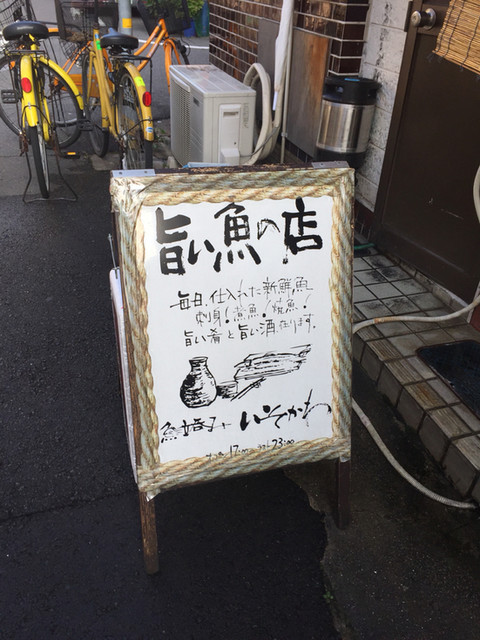 旨い魚の店
毎日、仕入れた新鮮魚
刺身！煮魚！焼魚！
旨い肴と旨い酒在ります。
いそかわ
17:00 23:00